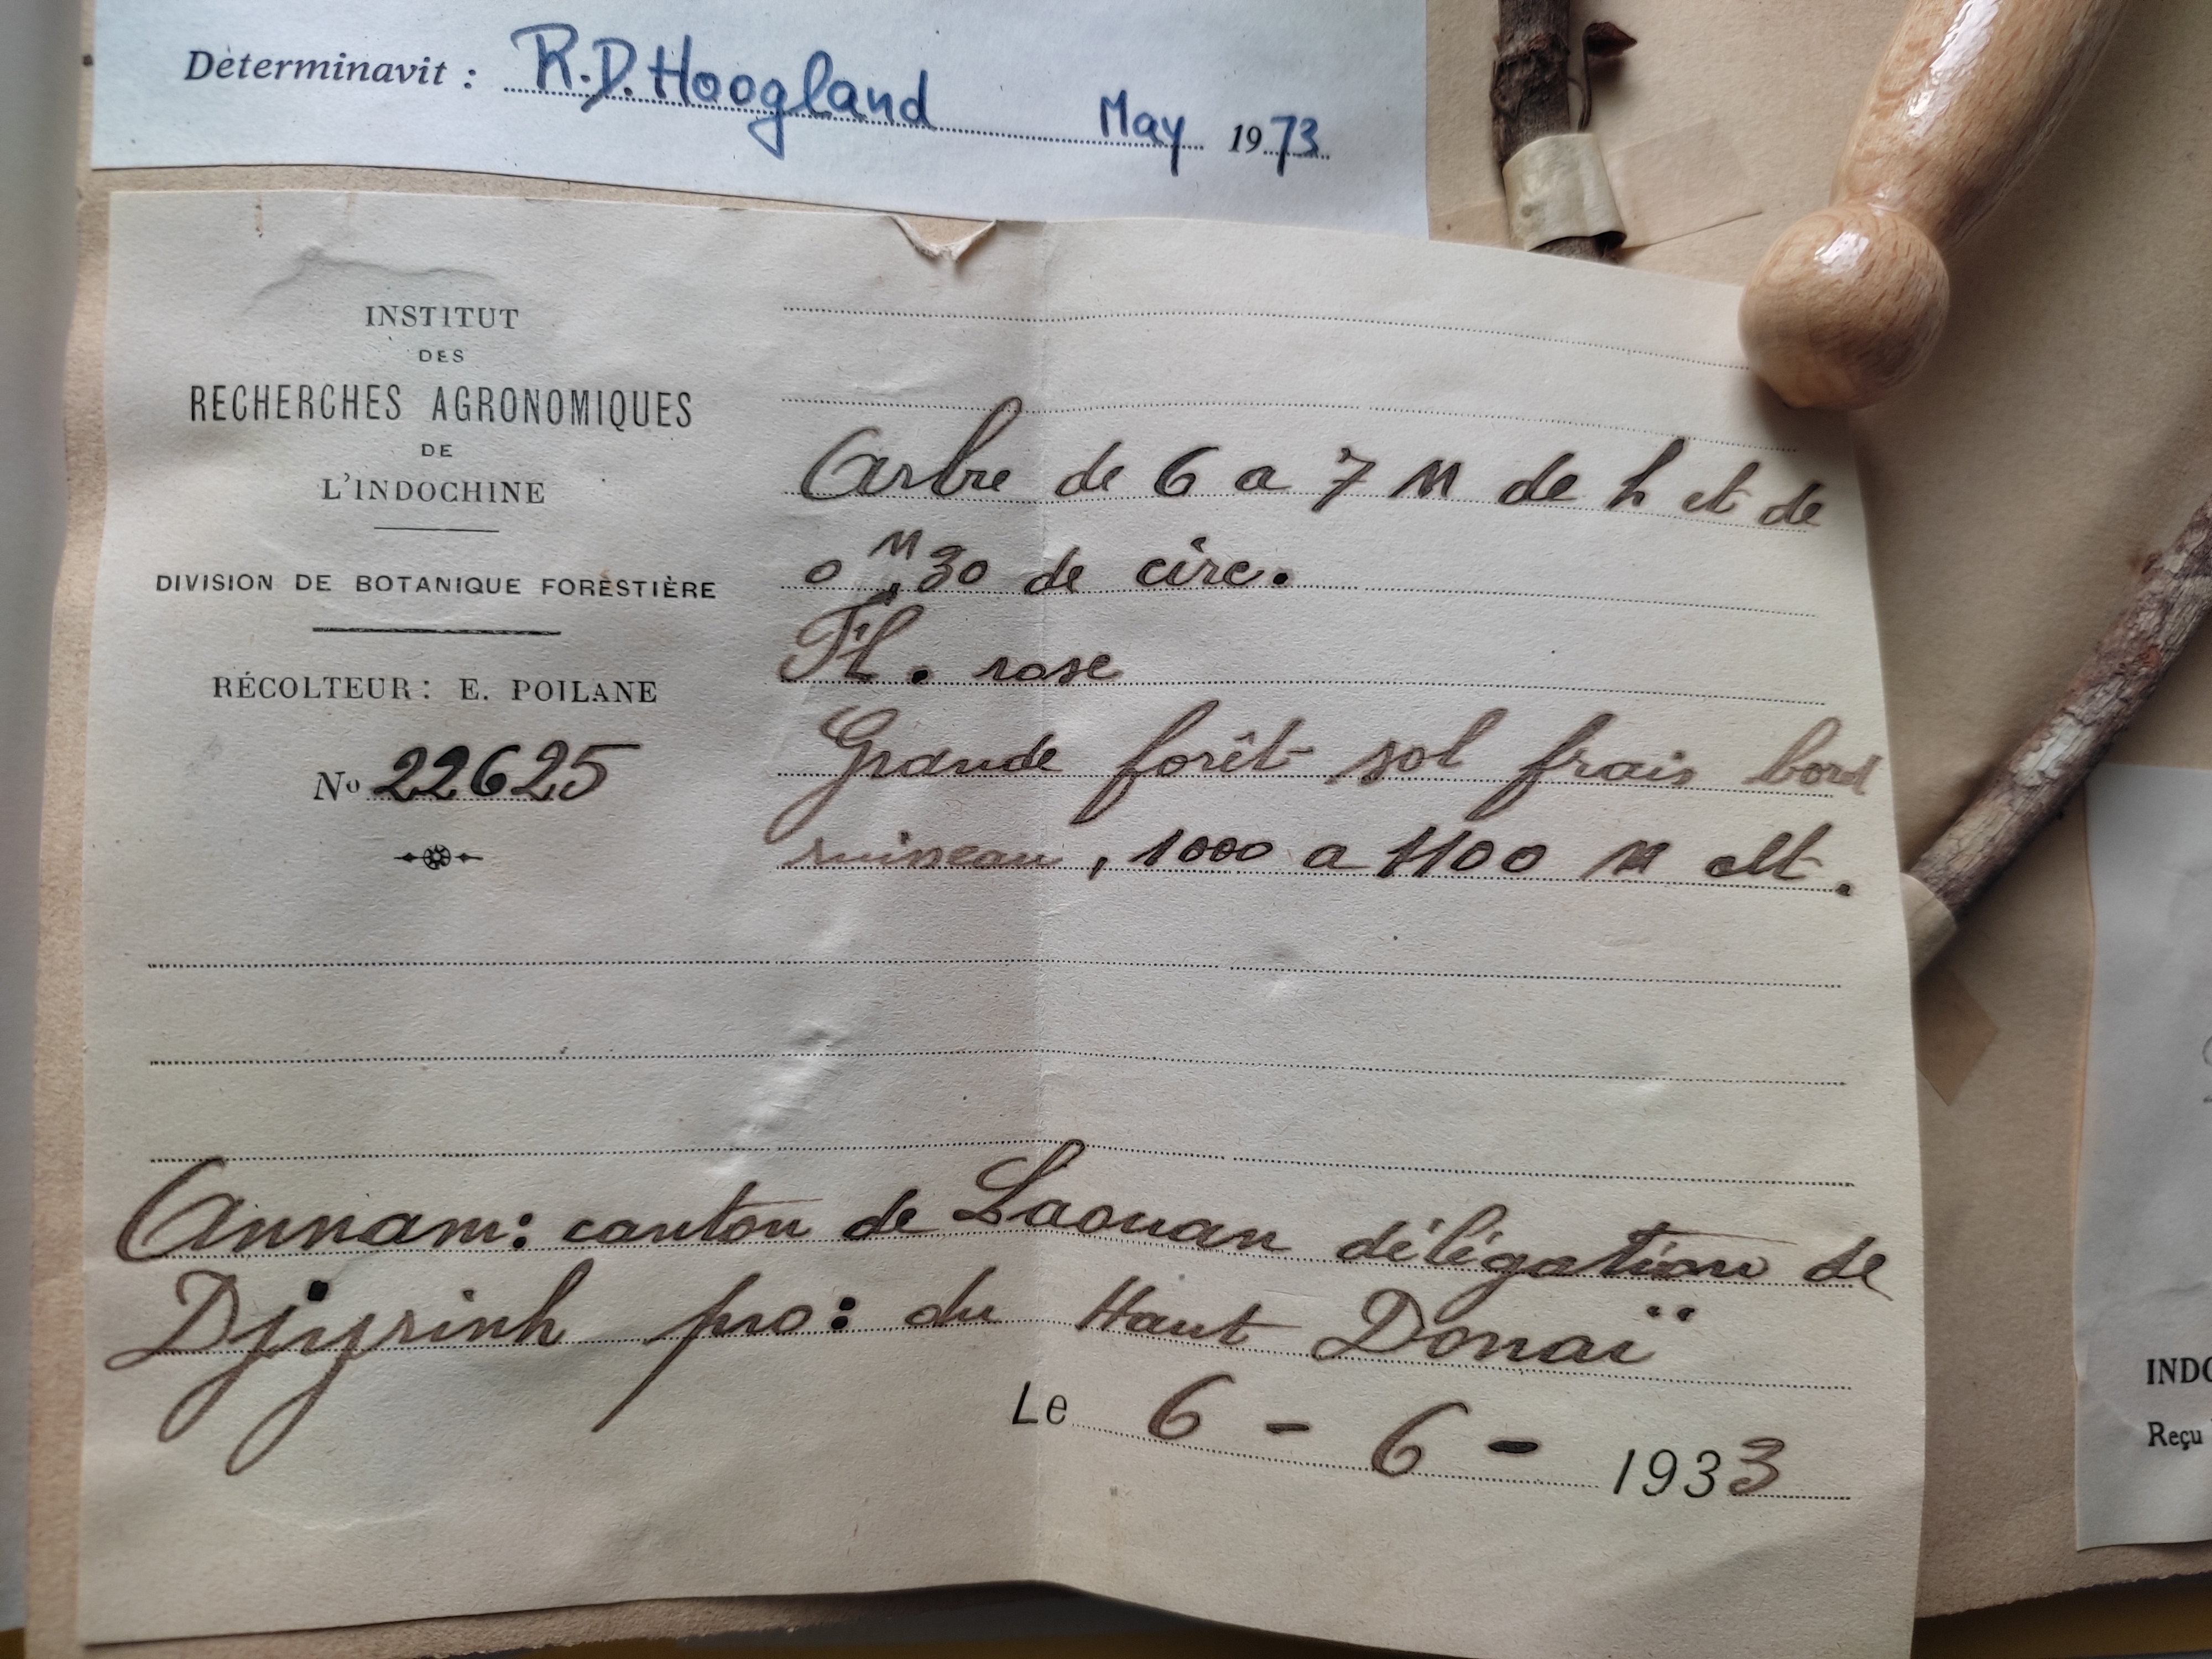 Determinavit : R.D. Hoogland May 1973
INSTITUT
DES
RECHERCHES AGRONOMIQUES
DE
L'INDOCHINE
DIVISION DE BOTANIQUE FORESTIÈRE
RÉCOLTEUR: E. POILANE
No 22625
Arbre de 6 a 7 M de h et de
0M,30 de circ.
Fl. rose
Grande forêt sol frais bord
ruisseau, 1000 a 1100 M alt.
Annam: canton de Laouan délégation de
Djyrinh pro: du Haut Donaï
Le 6 - 6 - 1933
INDO
Reçu